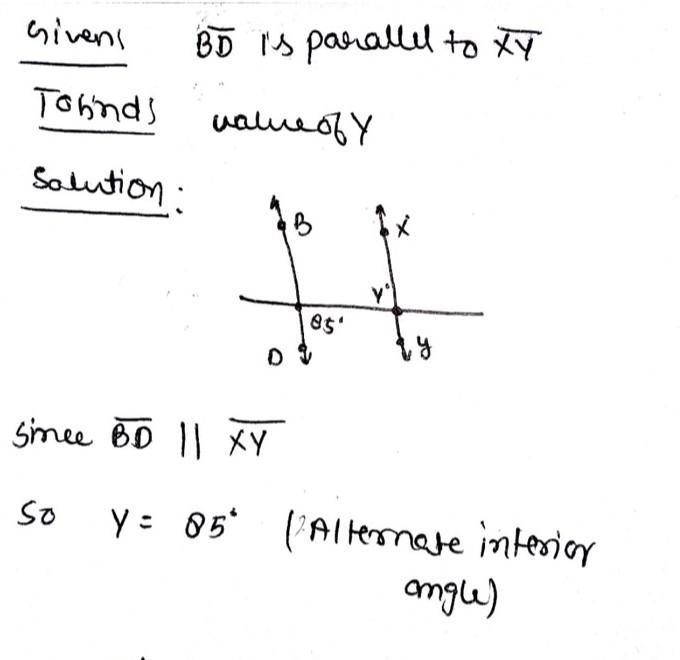 Given: BD is parallel to XY
Tofind: value of Y
Solution:
B
X
Y°
85°
D
y
Since BD || XY
So Y = 85° (∵ Alternate interior
angle)